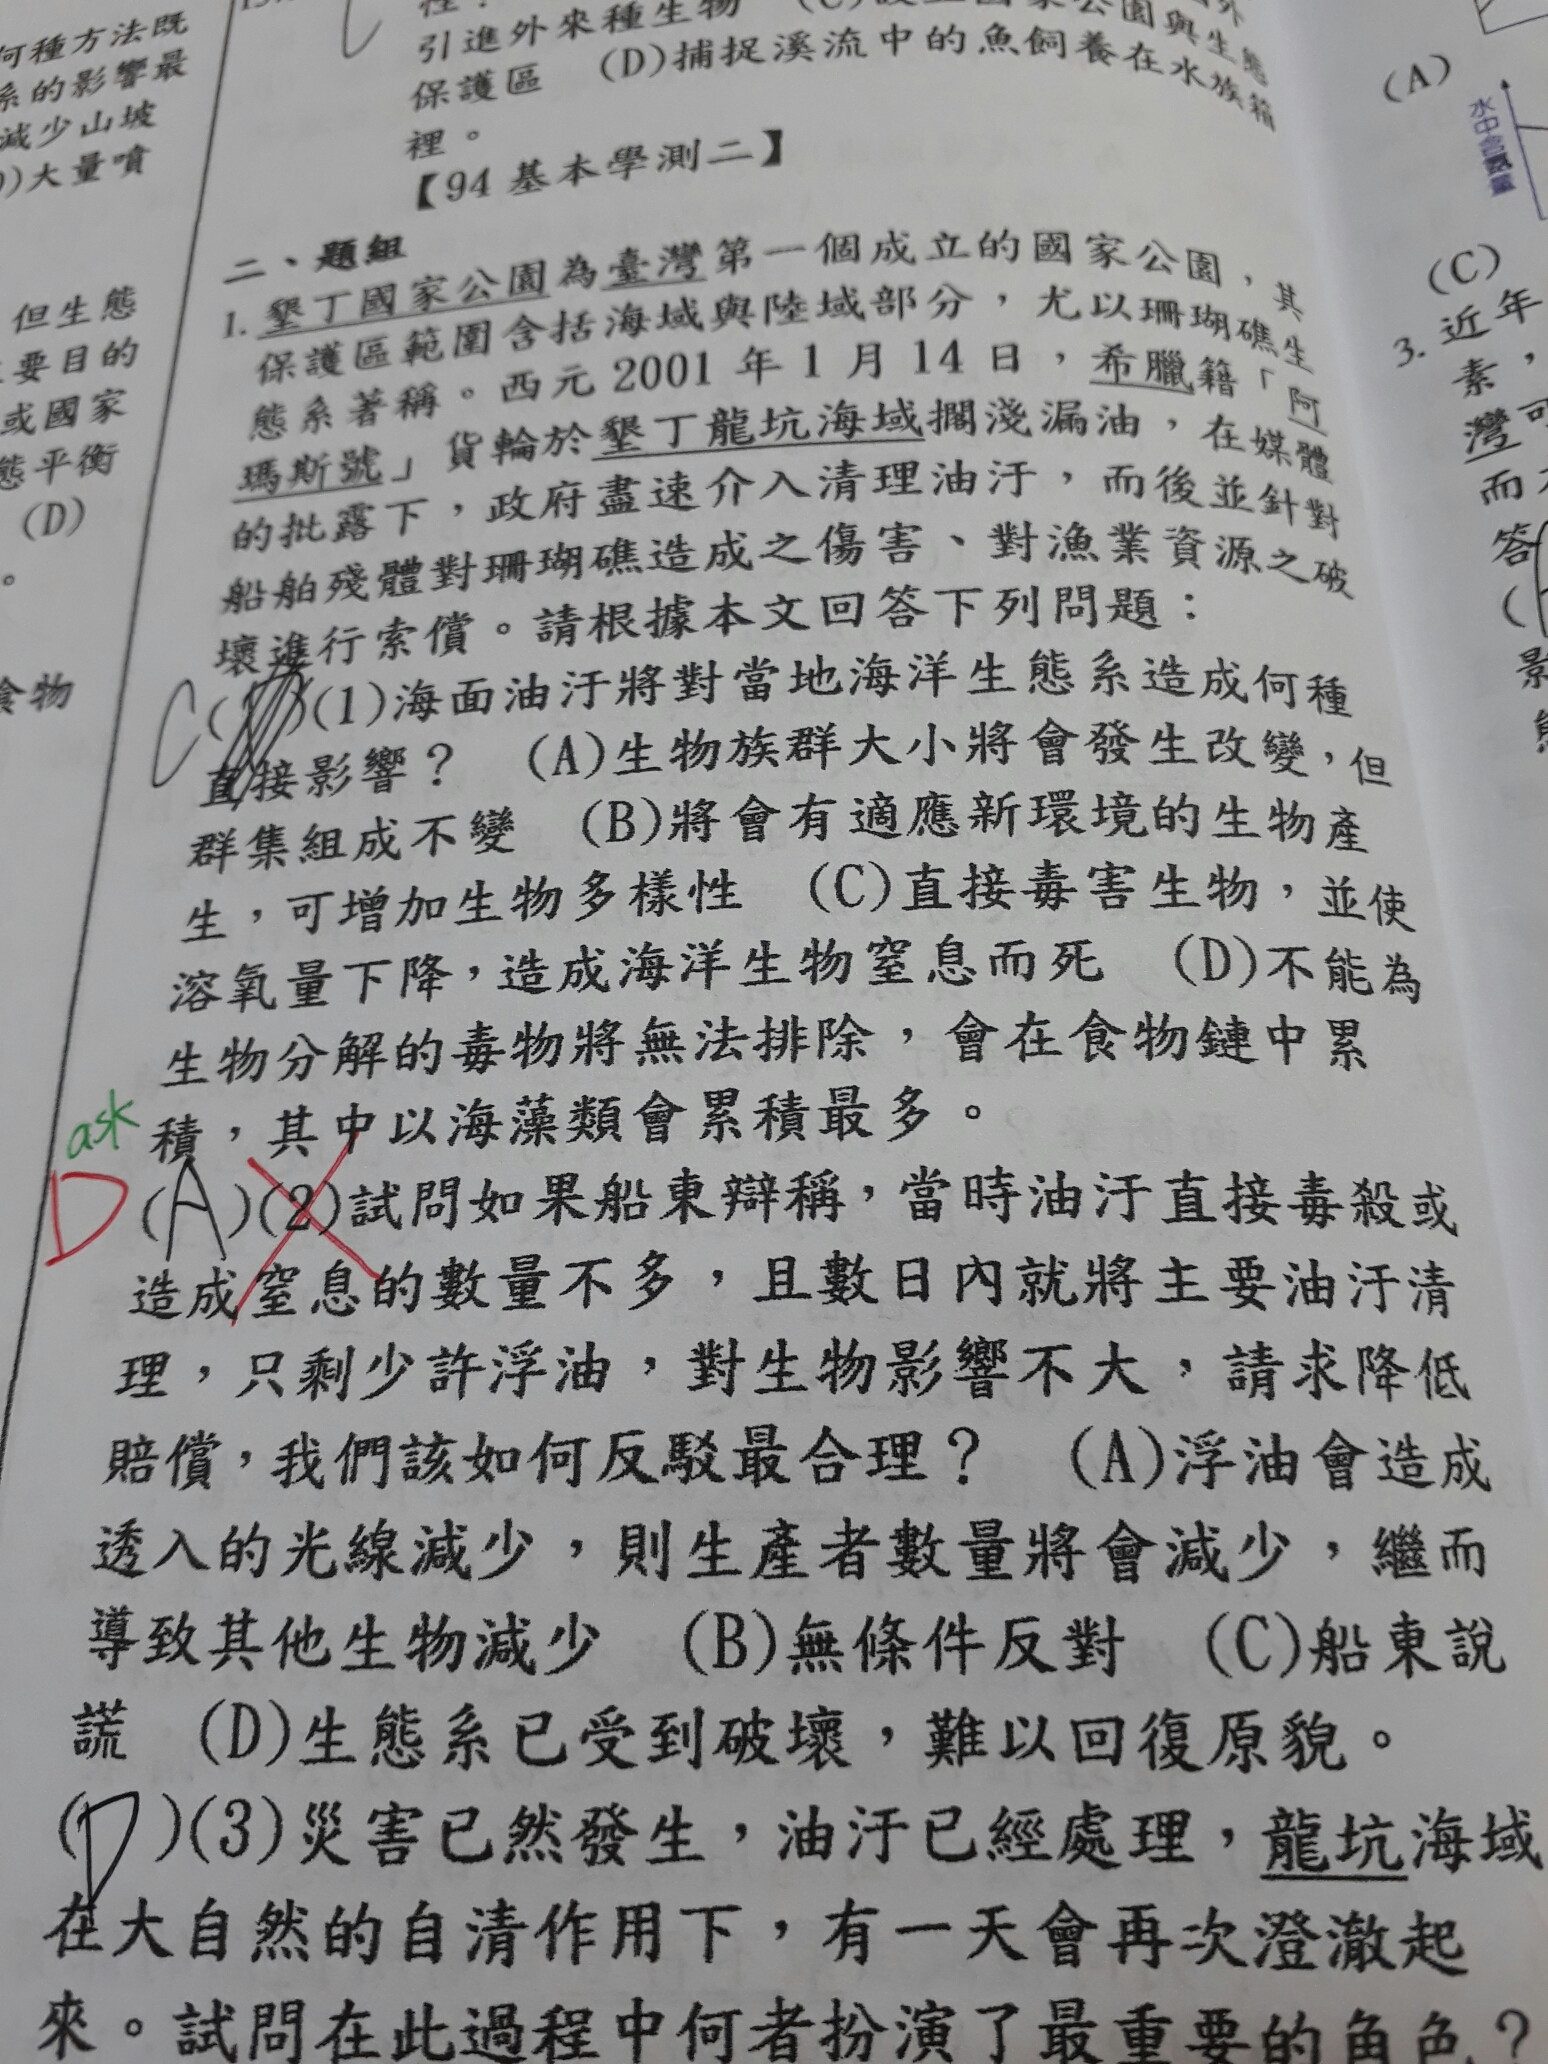 何種方法既
系的影響最
減少山坡
大量噴
但生態
要目的
或國家
態平衡
(D)
食物
引進外來種生物
保護區 (D)捕捉溪流中的魚飼養在水族箱
裡。
【94 基本學測二】
二、題組
1. 墾丁國家公園為臺灣第一個成立的國家公園，其
保護區範圍含括海域與陸域部分，尤以珊瑚礁生
態系著稱。西元 2001 年 1 月 14 日，希臘籍「阿
瑪斯號」貨輪於墾丁龍坑海域擱淺漏油，在媒體
的批露下，政府盡速介入清理油汙，而後並針對
船舶殘體對珊瑚礁造成之傷害、對漁業資源之破
壞進行索償。請根據本文回答下列問題：
C ( )(1)海面油汙將對當地海洋生態系造成何種
直接影響？ (A)生物族群大小將會發生改變，但
群集組成不變 (B)將會有適應新環境的生物產
生，可增加生物多樣性 (C)直接毒害生物，並使
溶氧量下降，造成海洋生物窒息而死 (D)不能為
生物分解的毒物將無法排除，會在食物鏈中累
積，其中以海藻類會累積最多。
ask
D (A)(2)試問如果船東辯稱，當時油汙直接毒殺或
造成窒息的數量不多，且數日內就將主要油汙清
理，只剩少許浮油，對生物影響不大，請求降低
賠償，我們該如何反駁最合理？ (A)浮油會造成
透入的光線減少，則生產者數量將會減少，繼而
導致其他生物減少 (B)無條件反對 (C)船東說
謊 (D)生態系已受到破壞，難以回復原貌。
(D)(3)災害已然發生，油汙已經處理，龍坑海域
在大自然的自清作用下，有一天會再次澄澈起
來。試問在此過程中何者扮演了最重要的角色？
(A)
水中含氮量
(C)
3. 近年
素，
灣可
而
答
(
影